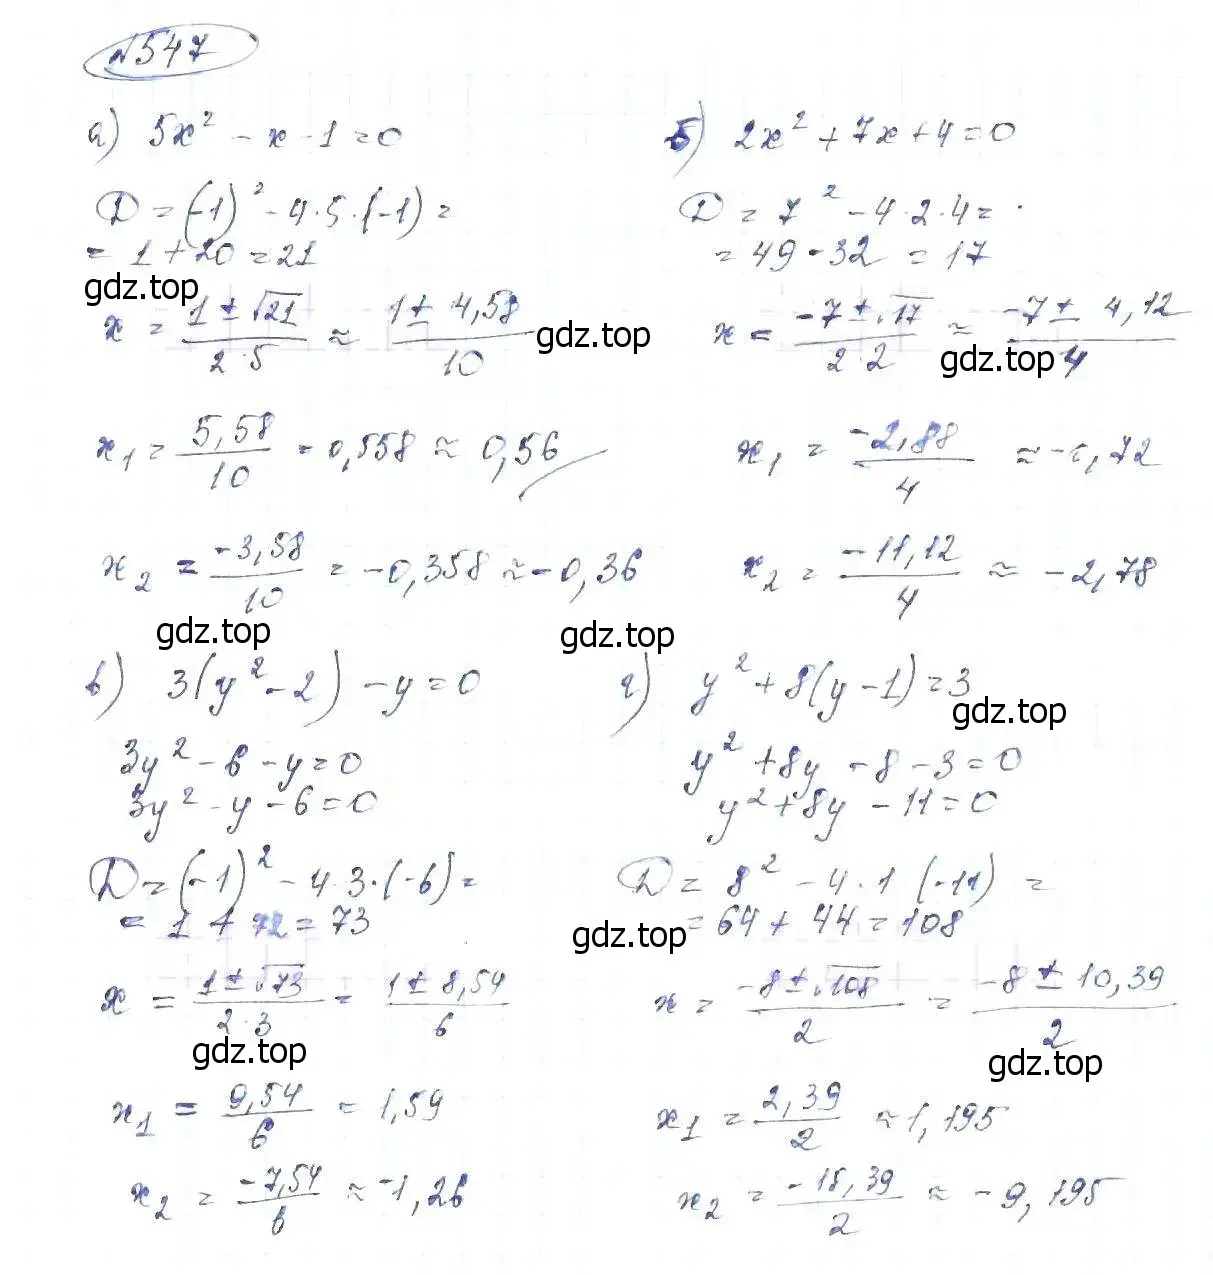 №547
а) 5x² - x - 1 = 0
D = (-1)² - 4·5·(-1) =
= 1 + 20 = 21
gdz.top
x = (1 ± √21)/(2·5) ≈ (1 ± 4,58)/10
gdz.top
x₁ = 5,58/10 = 0,558 ≈ 0,56
x₂ = -3,58/10 = -0,358 ≈ -0,36
gdz.top
gdz.top
б) 2x² + 7x + 4 = 0
D = 7² - 4·2·4 =
= 49 - 32 = 17
x = (-7 ± √17)/(2·2) ≈ (-7 ± 4,12)/4
gdz.top
x₁ = -2,88/4 ≈ -0,72
x₂ = -11,12/4 ≈ -2,78
в) 3(y² - 2) - y = 0
3y² - 6 - y = 0
3y² - y - 6 = 0
D = (-1)² - 4·3·(-6) =
= 1 + 72 = 73
x = (1 ± √73)/(2·3) = (1 ± 8,54)/6
gdz.top
x₁ = 9,54/6 = 1,59
x₂ = -7,54/6 ≈ -1,26
г) y² + 8(y - 1) = 3
gdz.top
y² + 8y - 8 - 3 = 0
y² + 8y - 11 = 0
D = 8² - 4·1 (-11) =
= 64 + 44 = 108
gdz.top
x = (-8 ± √108)/2 = (-8 ± 10,39)/2
gdz.top
x₁ = 2,39/2 ≈ 1,195
x₂ = -18,39/2 ≈ -9,195